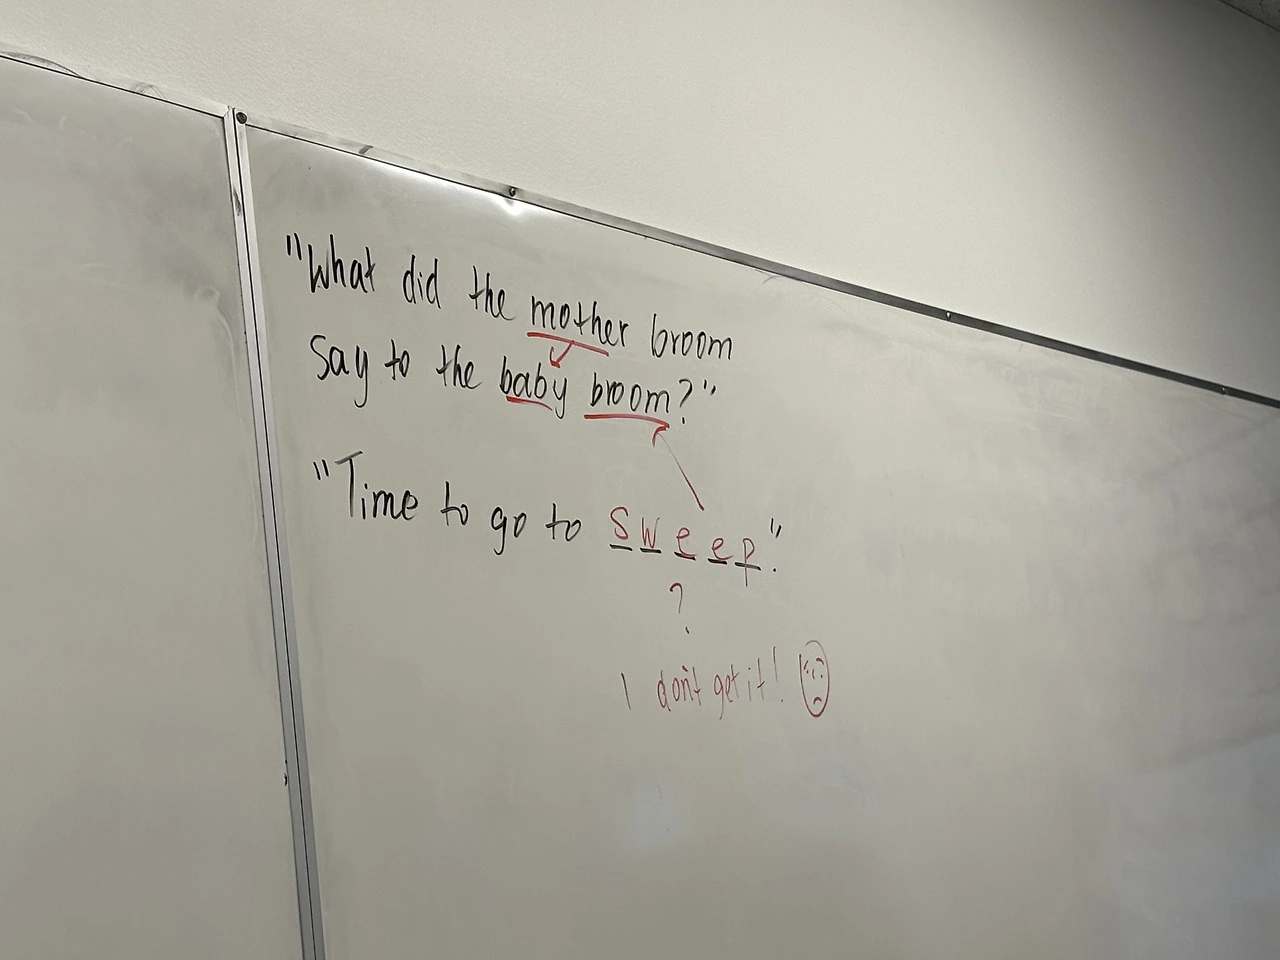 "What did the mother broom
say to the baby broom?"
"Time to go to sweep."
?
I don't get it!